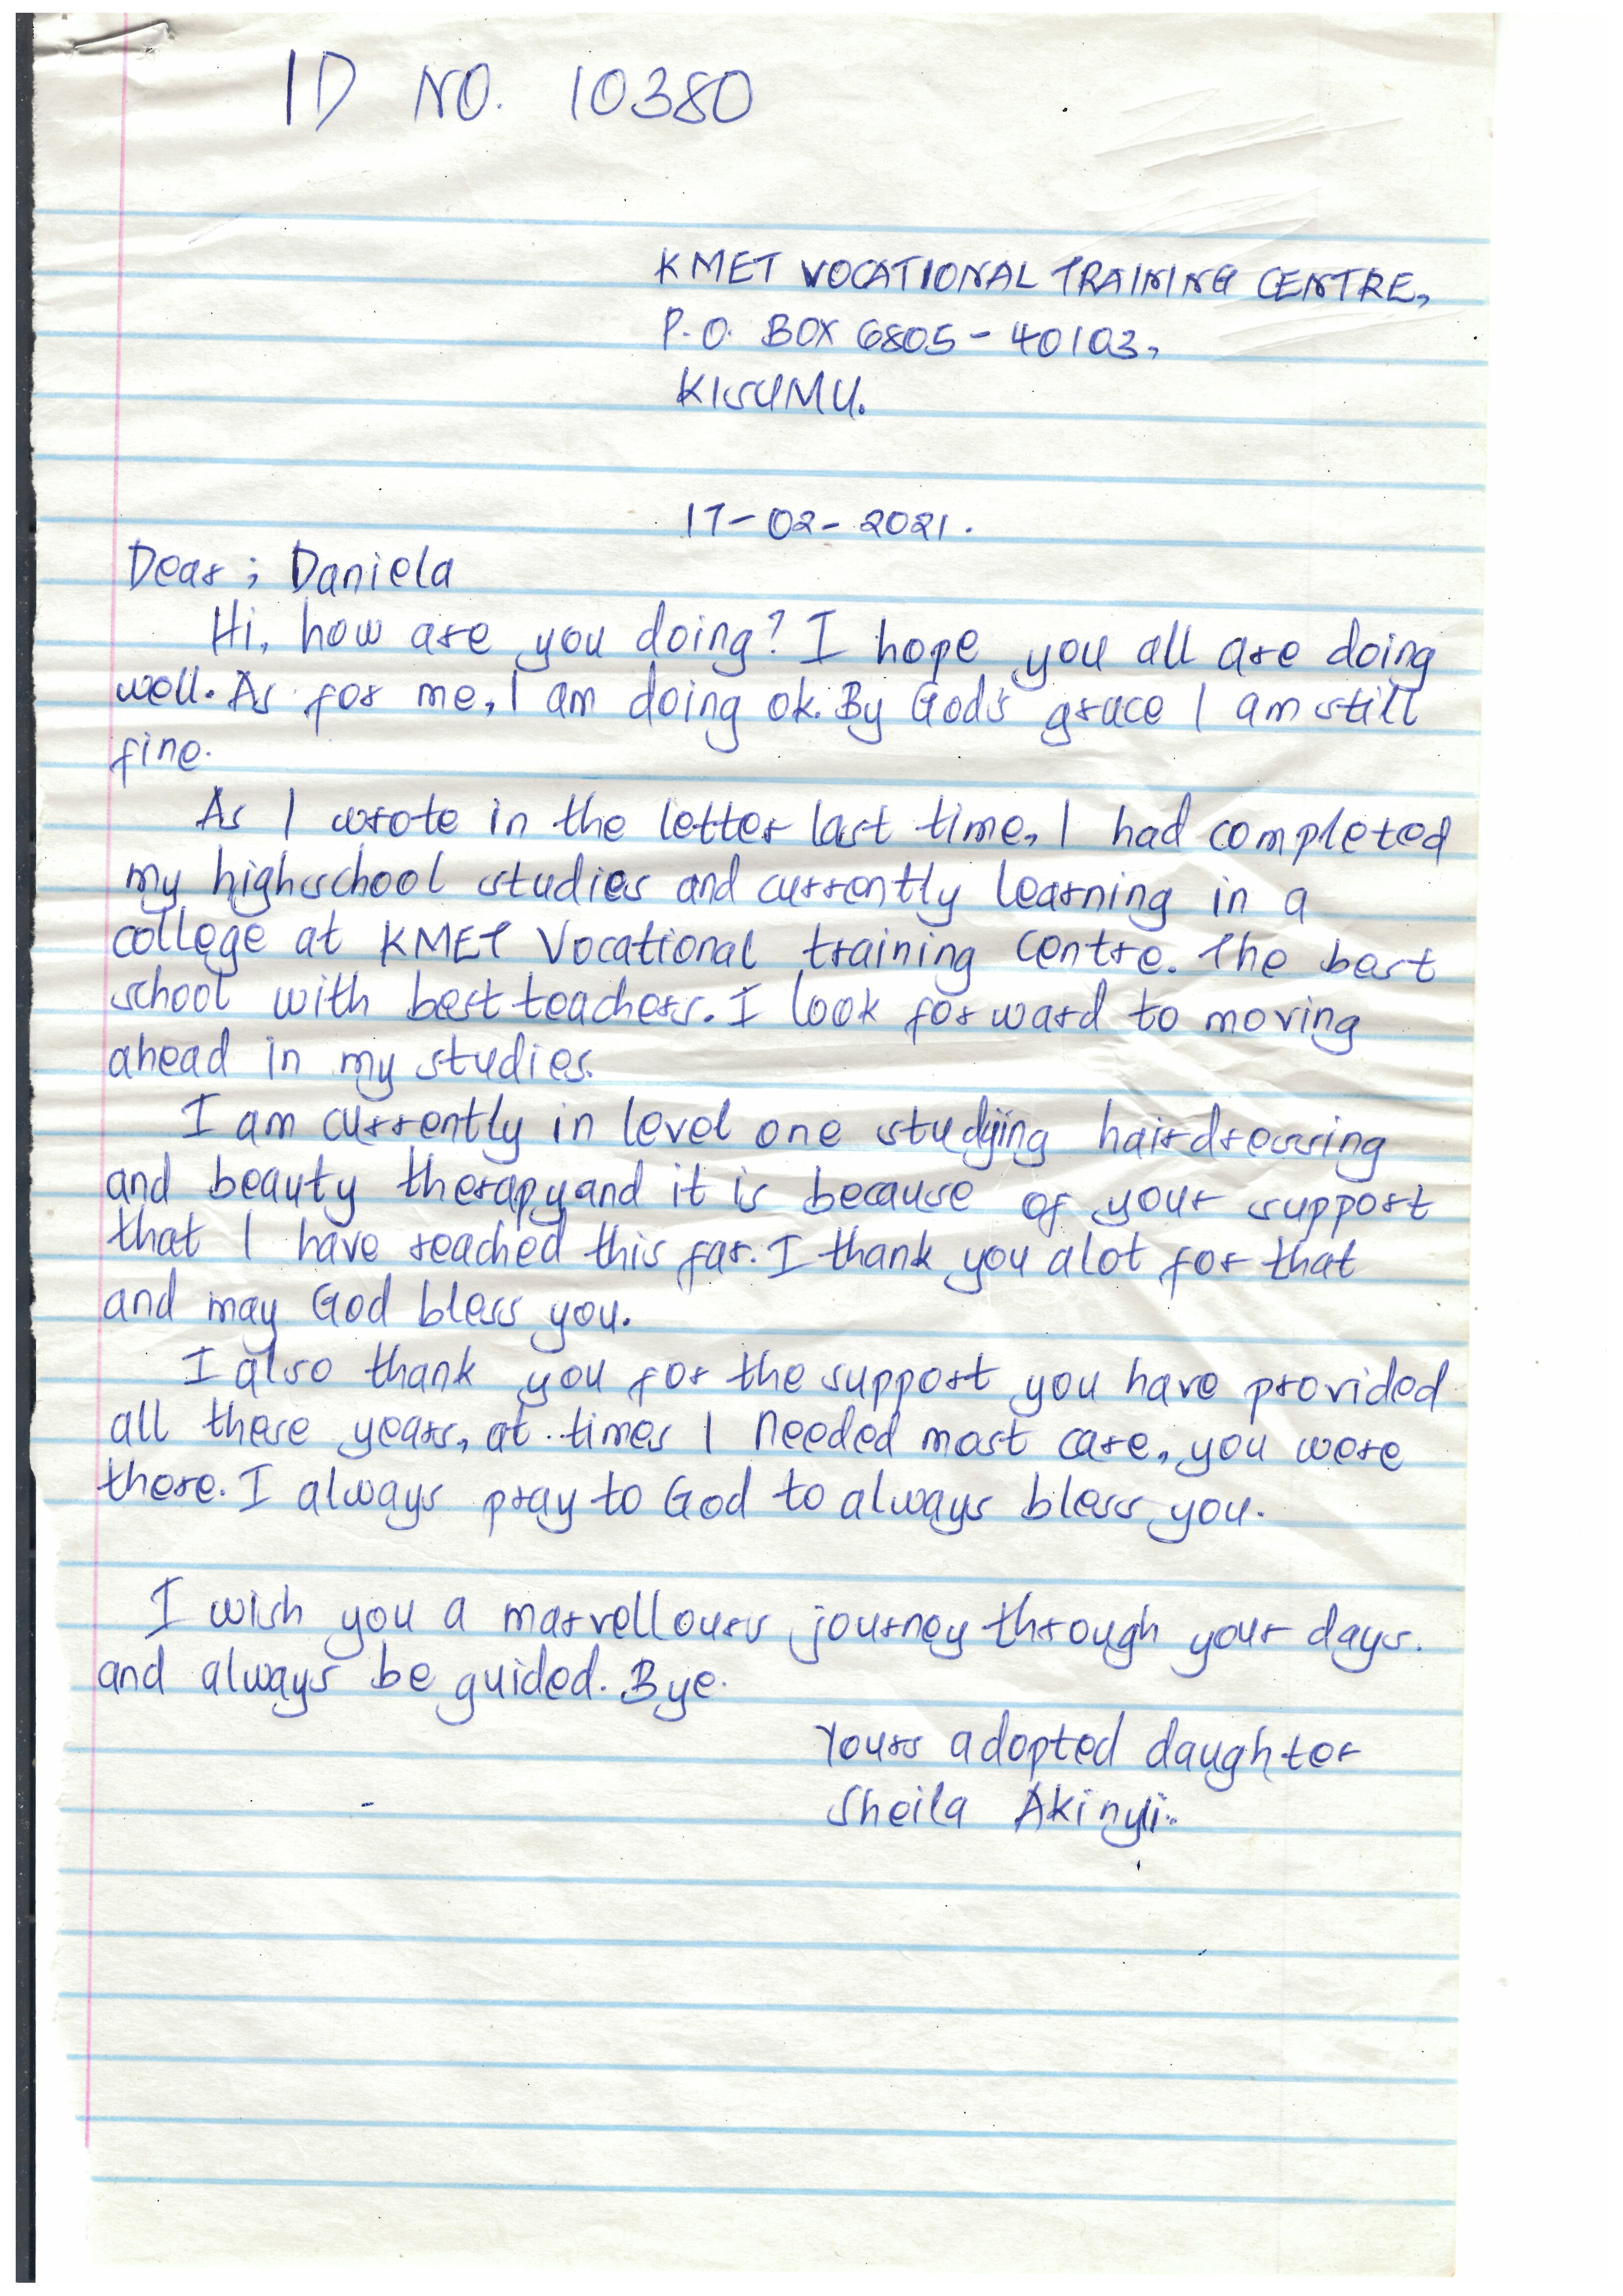 ID NO. 10380
KMET VOCATIONAL TRAINING CENTRE,
P.O. BOX 6805 - 40103,
KISUMU.
17-02-2021.
Dear ; Daniela
Hi, how are you doing? I hope you all are doing
well. As for me, I am doing ok. By God's grace I am still
fine.
As I wrote in the letter last time, I had completed
my highschool studies and currently learning in a
college at KMET Vocational training Centre. The best
school with best teachers. I look forward to moving
ahead in my studies.
I am currently in level one studying hairdressing
and beauty therapy and it is because of your support
that I have reached this far. I thank you alot for that
and may God bless you.
I also thank you for the support you have provided
all these years, at times I needed most care, you were
there. I always pray to God to always bless you.
I wish you a marvellours journey through your days.
and always be guided. Bye.
Yours adopted daughter
Sheila Akinyi.